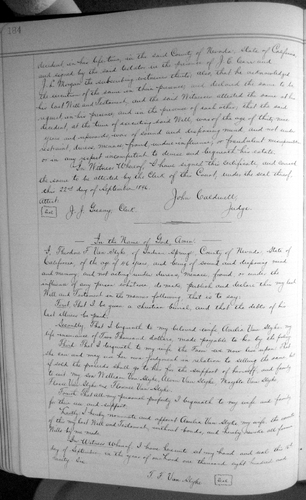 184
decedent in her life time, in the said County of Nevada, State of California
and signed by the said testator in the presence of J. C. and
J. L. Morgan the subscribing witnesses thereto. Also, that he acknowledged
the execution of the same in their presence and declared the same to be
his last Will and Testament, and the said Witnesses attested the same at his
request in his presence, and in the presence of each other; that the said
decedent, at the time of executing said Will, was of the age of thirty one
years and upwards, was of sound and disposing mind, and not under
restraint, duress, menace, fraud, undue influence, or fraudulent
or in any respect incompetent to devise and bequeath his estate.
In Witness Whereof, I have signed this Certificate, and caused
the same to be attested by the Clerk of this Court, under the seal thereof,
this 22nd day of September
John Caldwell
Attest
Judge.
Seal J. J. Clerk
In the Name of God, Amen
I, F. Van Slyke of Indian Springs, County of Nevada, State of
California, of the age of years, being of sound and disposing mind
and memory, and not acting under duress, menace, fraud, or under the
influence of any person whatever do make publish and declare this my last
Will and Testament in the manner following, that is to say:
First. That I be given a christian burial, and that the debts of his
last illness be paid.
Secondly. That I bequeath to my beloved wife Amelia Van Slyke, my
life insurance of Two Thousand dollars, made payable to her by the policy
Third. That I bequeath to my wife the Farm now upon. That
she can and may use her own judgment in relation to selling the same but
if sold the proceeds shall go to her for the support of herself, and family
to wit: my son William Van Slyke, Van Slyke, Van Slyke
Van Slyke and Florence Van Slyke.
Fourth. That all my personal property I bequeath to my wife and family
for their use and support.
Fifthly. I hereby nominate and appoint Amelia Van Slyke, my wife, the executrix
of this my last Will and Testament, without bonds, and hereby revoke all former
Wills by me made.
In Witness Whereof, I have hereunto set my hand and seal this
day of September, in the year of our Lord one thousand eight hundred and
ninety six
T. F. Van Slyke Seal